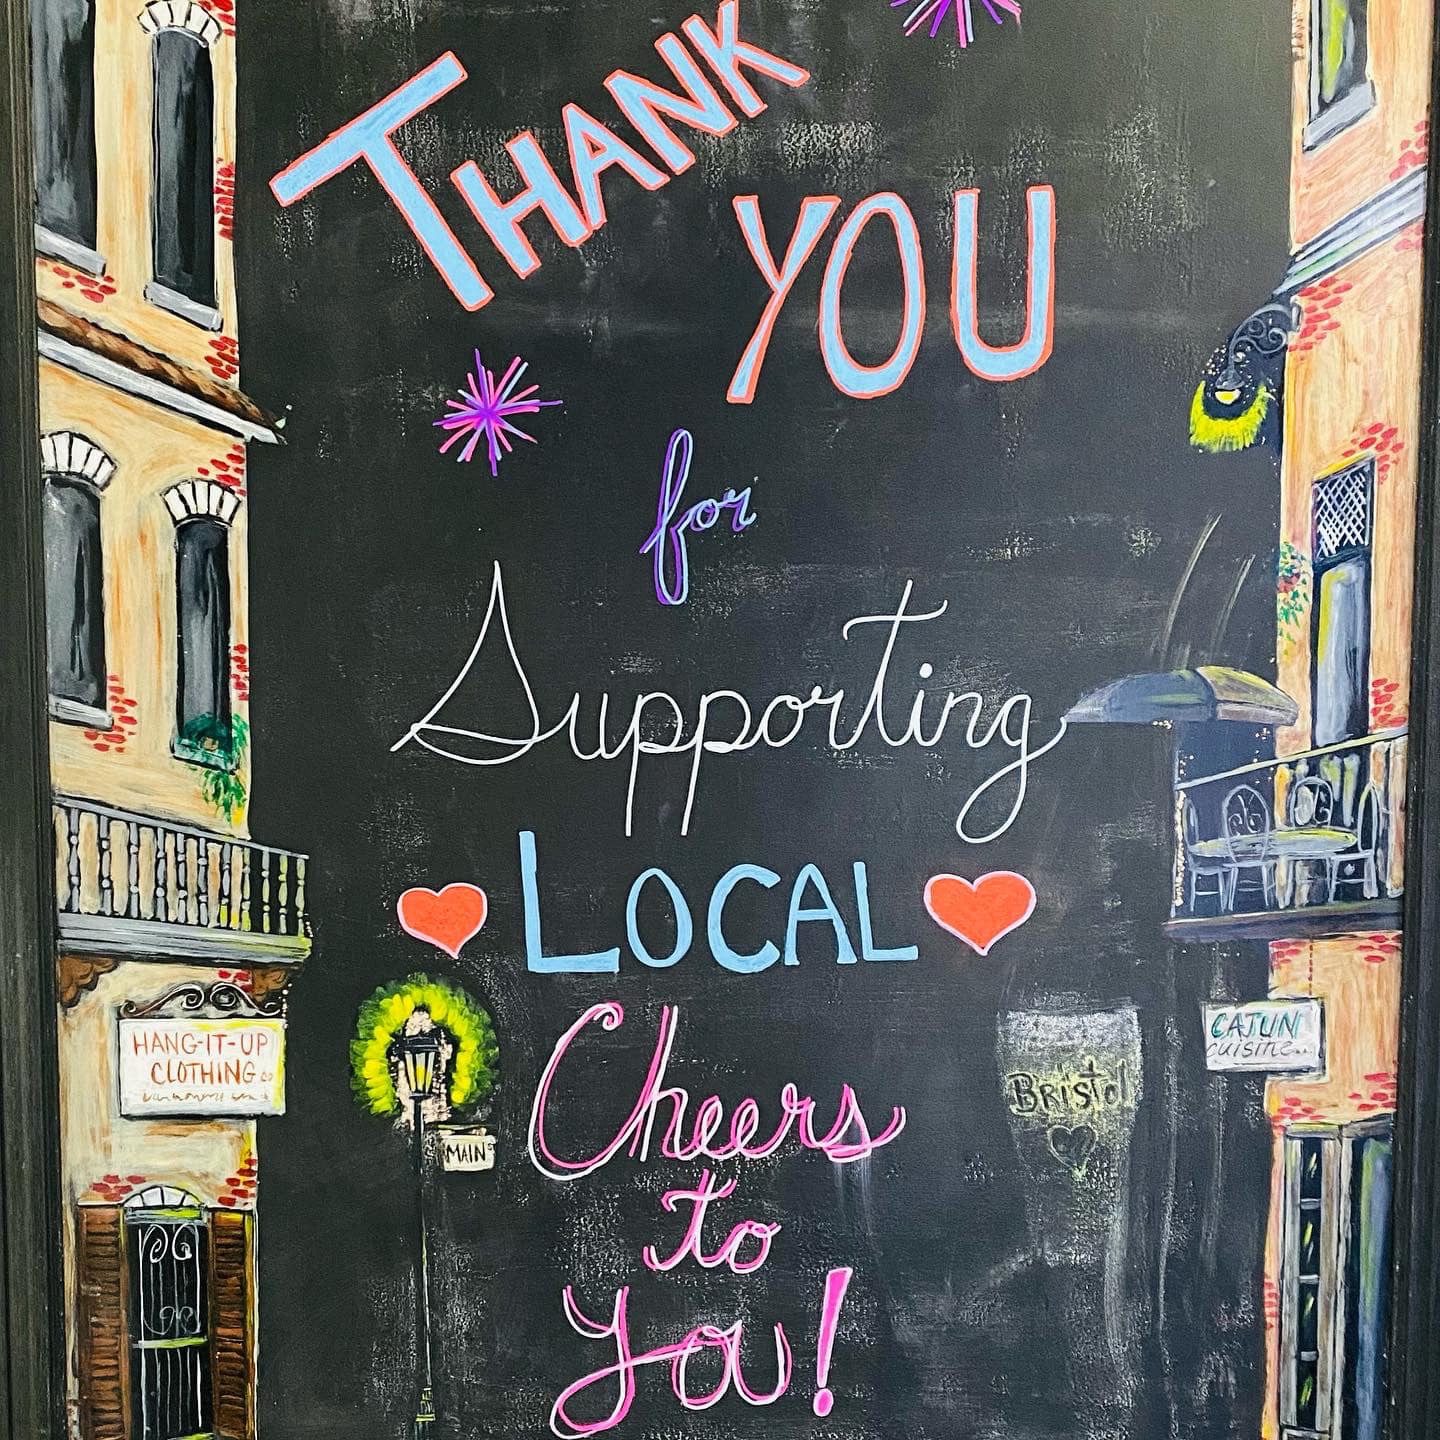 THANK
YOU
for
Supporting
LOCAL
Cheers
to
You!
HANG-IT-UP
CLOTHING CO
MAIN
BRISTOL
CAJUN
cuisine